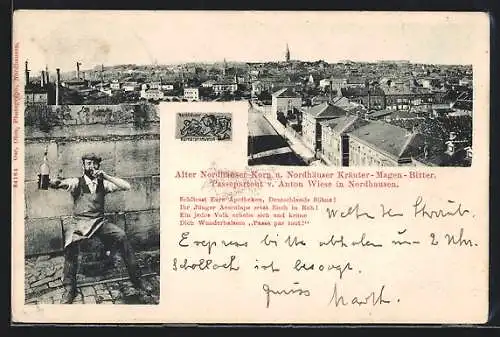 Alter Nordhäuser-Korn u. Nordhäuser Kräuter-Magen-Bitter.
Passepartout v. Anton Wiese in Nordhausen.
Schliesst Eure Apotheken, Deutschlands Söhne!
Ihr Jünger Aesculaps setzt Euch in Ruh!
Ein jedes Volk erhebe sich und kröne
Dich Wunderbalsam „Passe par tout!“
Express bitte abholen um 2 Uhr.
ist besorgt.
Gruss
Nordhausen.